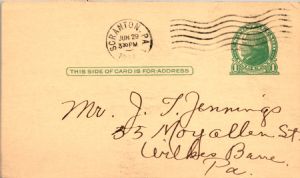 SCRANTON, PA.
JUN 29
3 30 PM
THIS SIDE OF CARD IS FOR ADDRESS
Mr. J. T. Jennings
35 Moyallen St.
Wilkes Barre.
Pa.